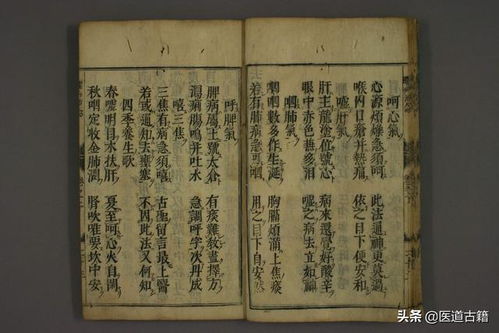 呵心氣
心源煩燥急須呵 此法通神更莫過
喉內口瘡并熱痛 依之目下便安和
噓肝氣
肝主龍塗位號心 病來還覺好酸辛
眼中赤色兼多淚 噓之病去立如神
呬肺氣
呬呬數多作生涎 胸膈煩滿上焦痰
若有肺病急須呬 用之目下自安然
呼脾氣
脾病屬土號太倉 有痰難教盡擇方
瀉痢腸鳴并吐水 急調呼字次丹成
嘻三焦
三焦有病急須嘻 古聖留言最上醫
若或通知去壅塞 不因此法又何知
四季養生歌
春噓明目木扶肝 夏至呵心火自閑
秋呬定收金肺潤 腎吹惟要坎中安
头条 @医道古籍